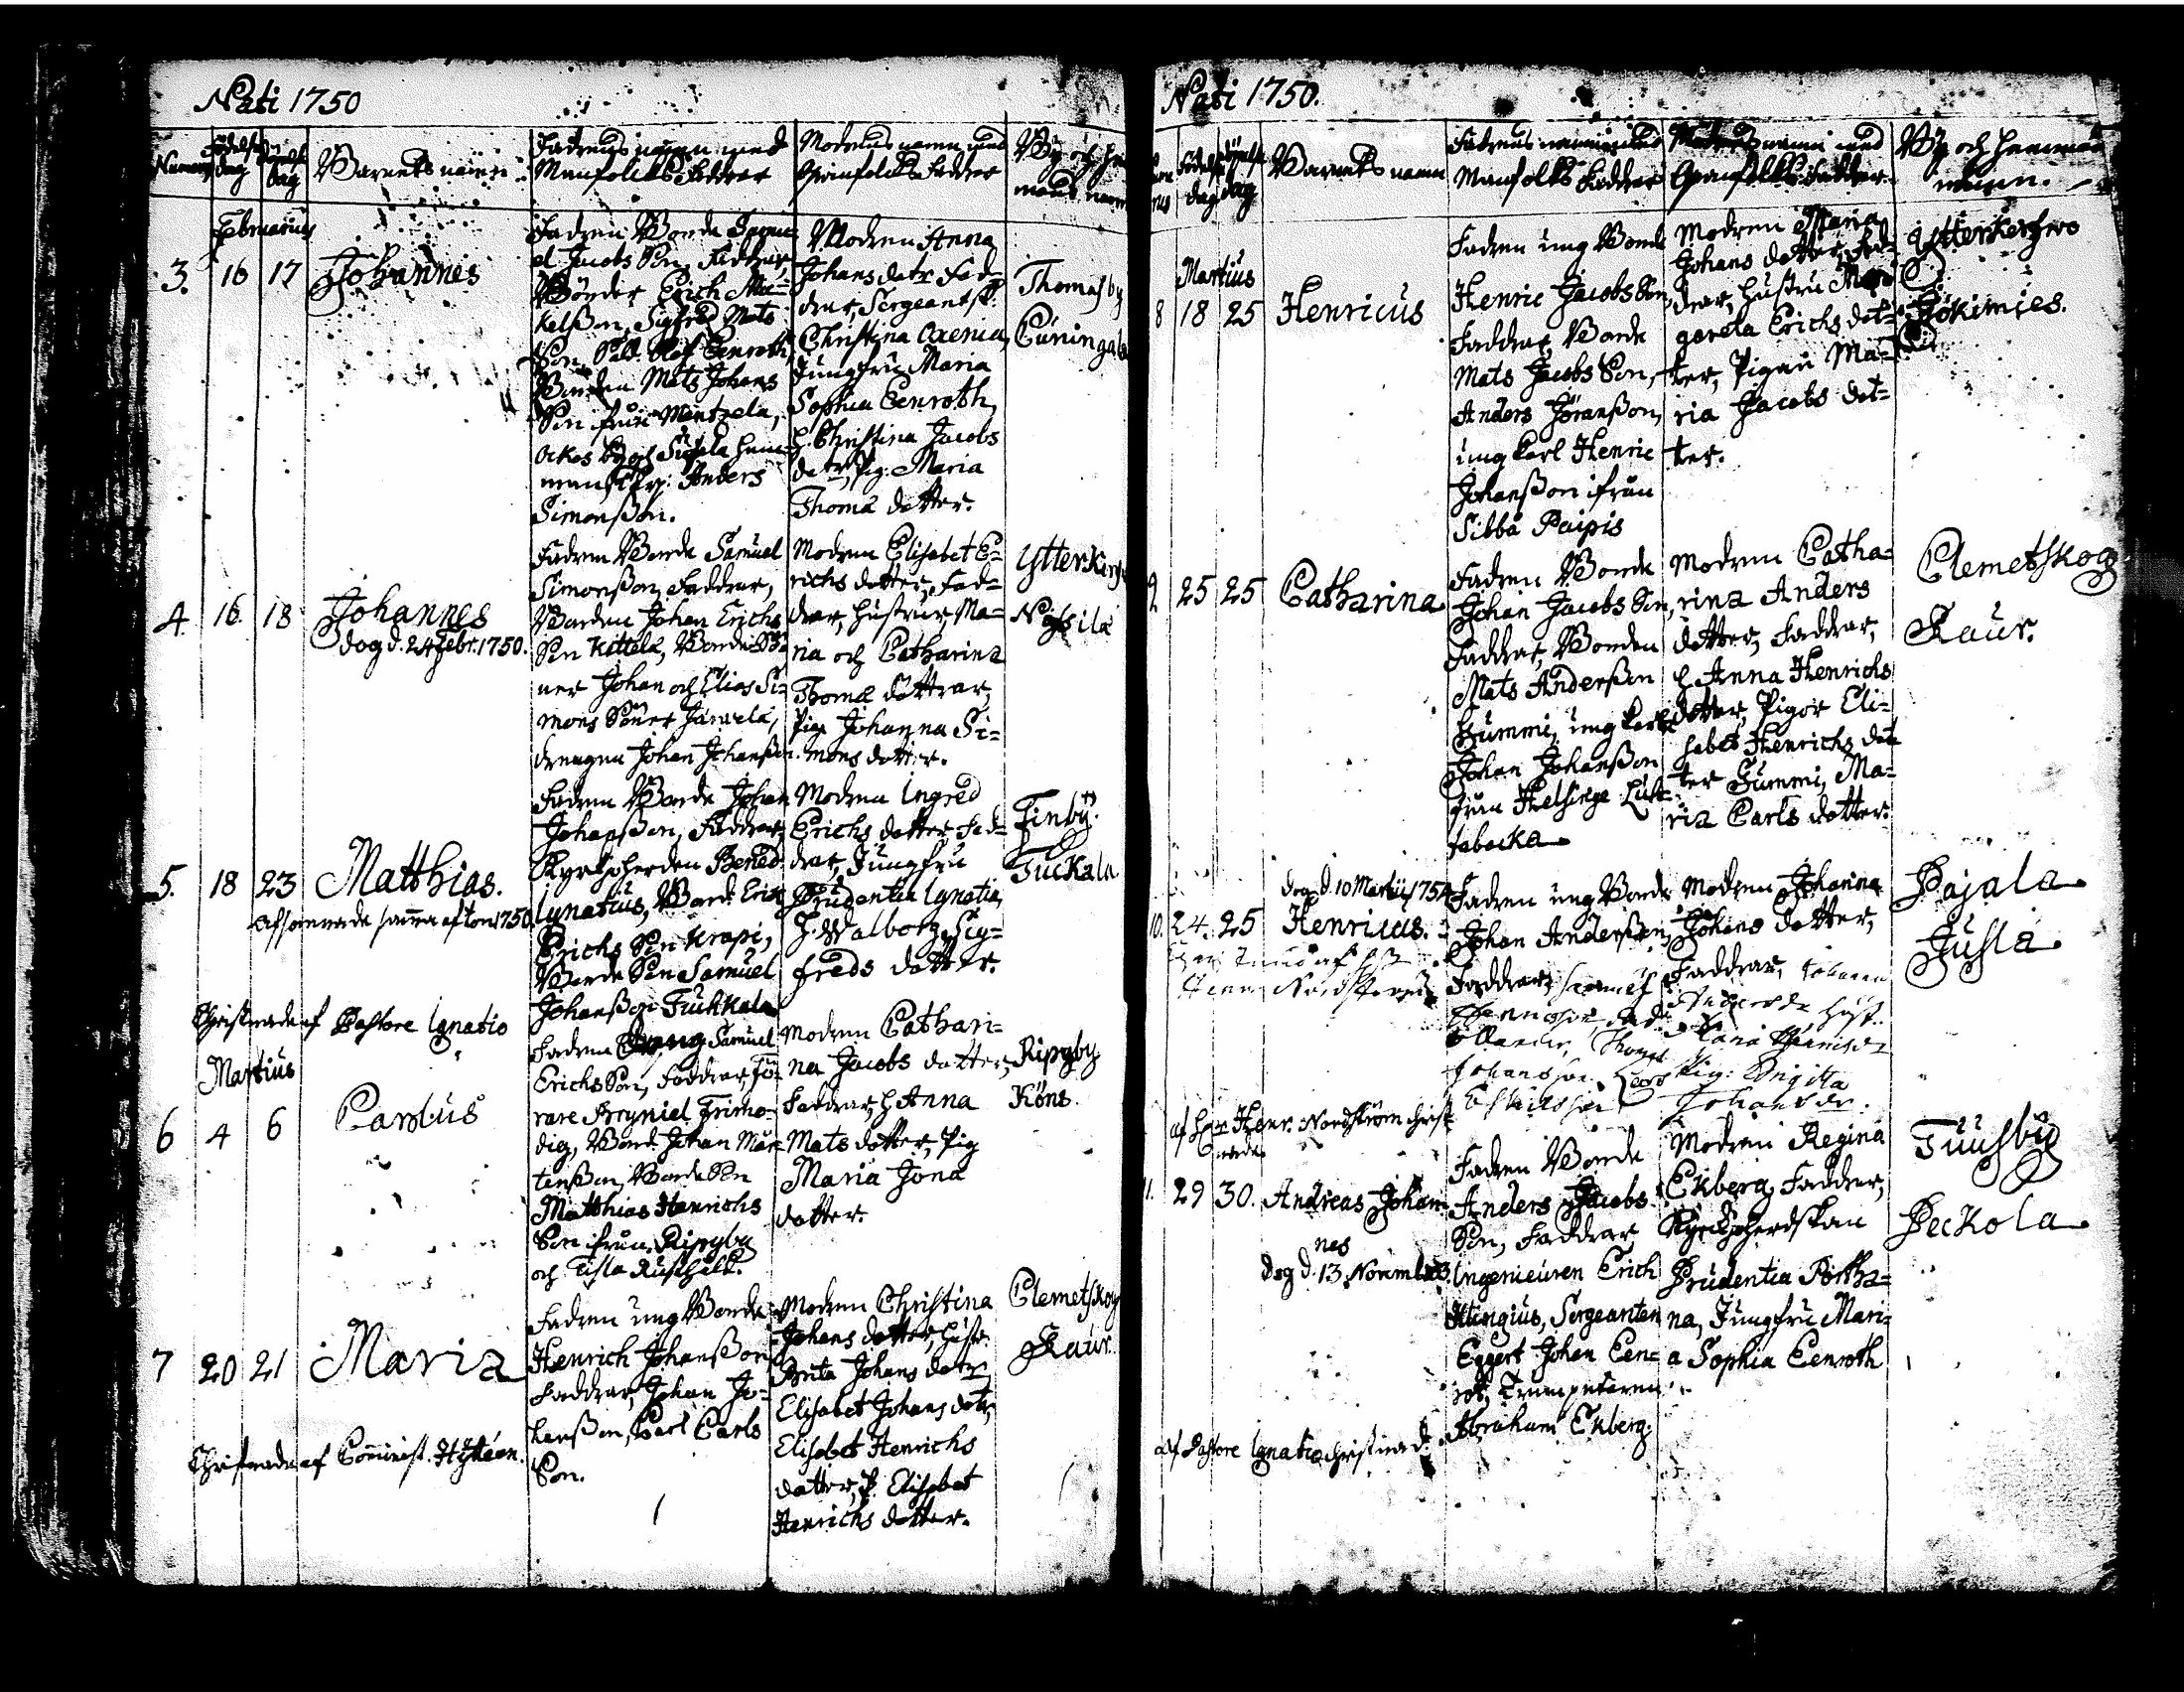 Nati 1750
Numerus
Födelse dag
Döpelse dag
Barnets namn
Fadrens namn med
Manfolcks Faddrar
Modrens namn med
Qvinfolcks Faddrar
By och hem
mans namn
Februarius
3. 16 17 Johannes
Fadren Bonde Samu=
el Jacobs Son, Faddrar,
Bönder Erich Mic=
kelsson, Sigfred Mats
Son, Sold. Olof Eenroth,
Bonden Mats Johans
Son ifrån Mentzela,
Ackas by och Sigala hem=
man Anders
Simonsson.
Modren Anna
Johans dotr Fad=
drar, Sergeantsk.
Christina
Jungfru Maria
Sophia Eenroth,
H. Christina Jacobs
dotr, Pig. Maria
Thomæ dotter.
Thomasby
Cuningala
4. 16 18 Johannes
dog d. 24 Febr. 1750.
Fadren Bonde Samuel
Simonsson, Faddrar,
Bonden Johan Erichs
Son Kittela, Bonde Sö=
ner Johan och Elias Si=
mons Söner Jarvela,
drengen Johan Johansson.
Modren Elisabet E=
richs dotter, Fad=
drar, Hustrur Ma=
ria och Catharina
Thomæ döttrar,
Pig. Johanna Si=
mons dotter.
Ytterkers
Nigsila
5. 18 23 Matthias.
afsomnade samma afton 1750
Fadren Bonde Johan
Johansson, Faddrar,
Kyrkjoherden Bened.
Ignatius, Bond. Erich
Erichs Son Krapi,
Bonde Son Samuel
Johansson Tuckkala
Modren Ingred
Erichs dotter Fad=
drar, Jungfru
Prudentia Ignatia,
H. Walborg Sig=
freds dotter.
Finby.
Tuckala
Christnade af Pastore Ignatio
Martius
6 4 6 Carolus
Fadren Samuel
Erichs Son, Faddrar, Fö=
rare Freyniel Frimo=
dig, Bond. Johan Mår=
tensson, Bonde Son
Matthias Henrichs
Son ifrån Ripuby
och Tisla Rusthåld.
Modren Cathari=
na Jacobs dotter,
Faddrar, H. Anna
Mats dotter, Pig
Maria Jona
dotter.
Ripuby
Köns.
7 20 21 Maria
Fadren ung Bonde
Henrich Johansson
Faddrar, Johan Jo=
hansson, Carl Carls
Son.
Modren Christina
Johans dotter, Hustr.
Brita Johans dotr
Elisabet Johans dotr,
Elisabet Henrichs
dotter, P. Elisabet
Henrichs dotter.
Clemetskog
Kaur.
Christnade af Comminist. Hÿtéen.
Nati 1750.
Födelse dag
Döpelse dag
Barnets namn
Fadrens namn med
Manfolks Faddrar
Modrens namn med
Qvinfolks Faddrar
By och Hemmans
namn.
Martius
8 18 25 Henricus
Fadren ung Bonde
Henric Jacobs Son,
Faddrar, Bonde
Mats Jacobs Son,
Anders Jöransson,
ung karl Henric
Johansson ifrån
Sibbå Paipis
Modren Maria
Johans dotter, Fad=
drar, Hustru Mar=
gareta Erichs dot=
ter, Pigan Ma=
ria Jacobs dot=
ter.
Ytterkerfwo
Jokimies.
9. 25 25 Catharina
Fadren Bonde
Johan Jacobs Son,
Faddrar, Bonden
Mats Andersson
Jummi, ung karl
Johan Johansson
ifrån Helsinge
Modren Catha=
rina Anders
dotter, Faddrar,
H Anna Henrichs
dotter, Pigor Eli=
sabet Henrichs dot
ter Jummi, Ma=
ria Carls dotter.
Clemetskog
Kaur.
dog d. 10 Martii 1754
10. 24. 25 Henricus.
Fadren ung Bonde
Johan Andersson,
Faddrar,
Thomas
Johansson. Lars
Eskilsson
Modren Johanna
Johans dotter,
Faddrar, Johanna
Hust.
Maria
Pig: Brigitta
Johansdr.
Pajala
Jusla
af Herr Henr. Nordström christ
nade.
11. 29 30. Andreas Johan=
nes
dog d. 13 November
Fadren Bonde
Anders Jacobs
Son, Faddrar
Ingenieuren Erich
Klingius, Sergeanten
Eggert Johan Een=
rot, Trumpetaren
Abraham Ekberg.
Modren Regina
Ekberg, Faddrar,
Kyrckjoherdskan
Prudentia Portha=
na, Jungfru Mari=
a Sophia Eenroth
Tuusby
Peckola
af Pastore Ignatio christnad.